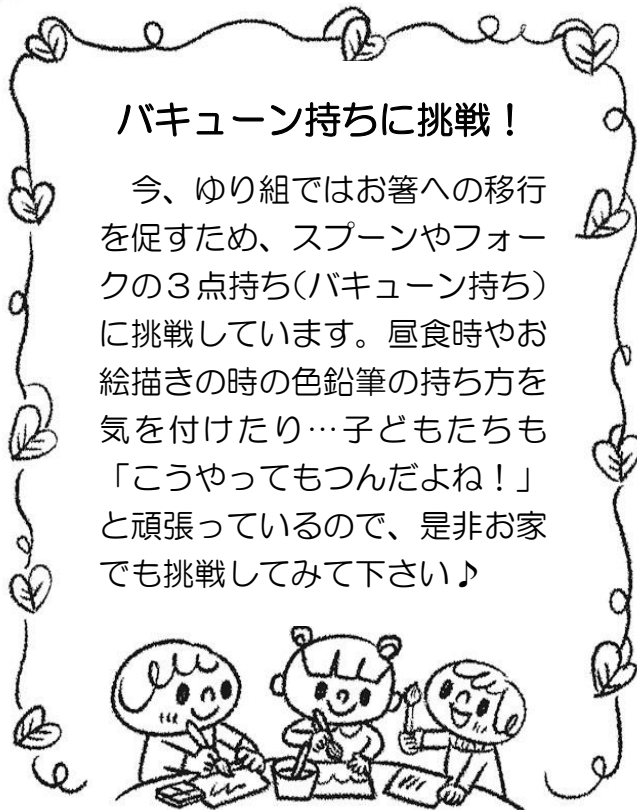 バキューン持ちに挑戦！
　今、ゆり組ではお箸への移行
を促すため、スプーンやフォー
クの３点持ち(バキューン持ち)
に挑戦しています。昼食時やお
絵描きの時の色鉛筆の持ち方を
気を付けたり…子どもたちも
「こうやってもつんだよね！」
と頑張っているので、是非お家
でも挑戦してみて下さい♪